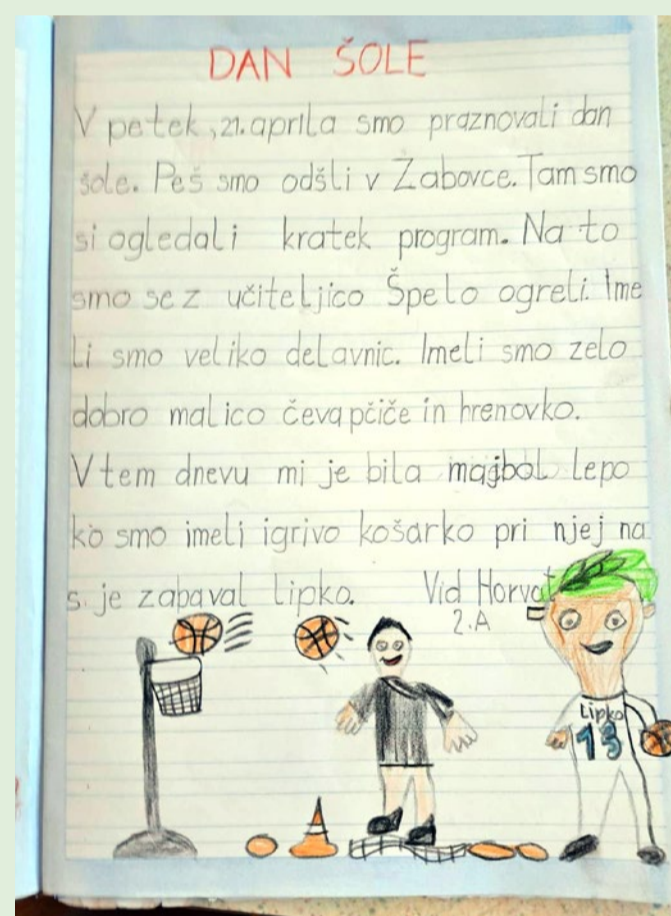 DAN ŠOLE
V petek, 21. aprila smo praznovali dan
šole. Peš smo odšli v Žabovce. Tam smo
si ogledali kratek program. Na to
smo se z učiteljico Špelo ogreli. Ime
li smo veliko delavnic. Imeli smo zelo
dobro malico čevapčiče in hrenovko.
V tem dnevu mi je bila majbol lepo
ko smo imeli igrivo košarko pri njej na
s je zabaval Lipko. Vid Horvat
2.A
Lipko
13